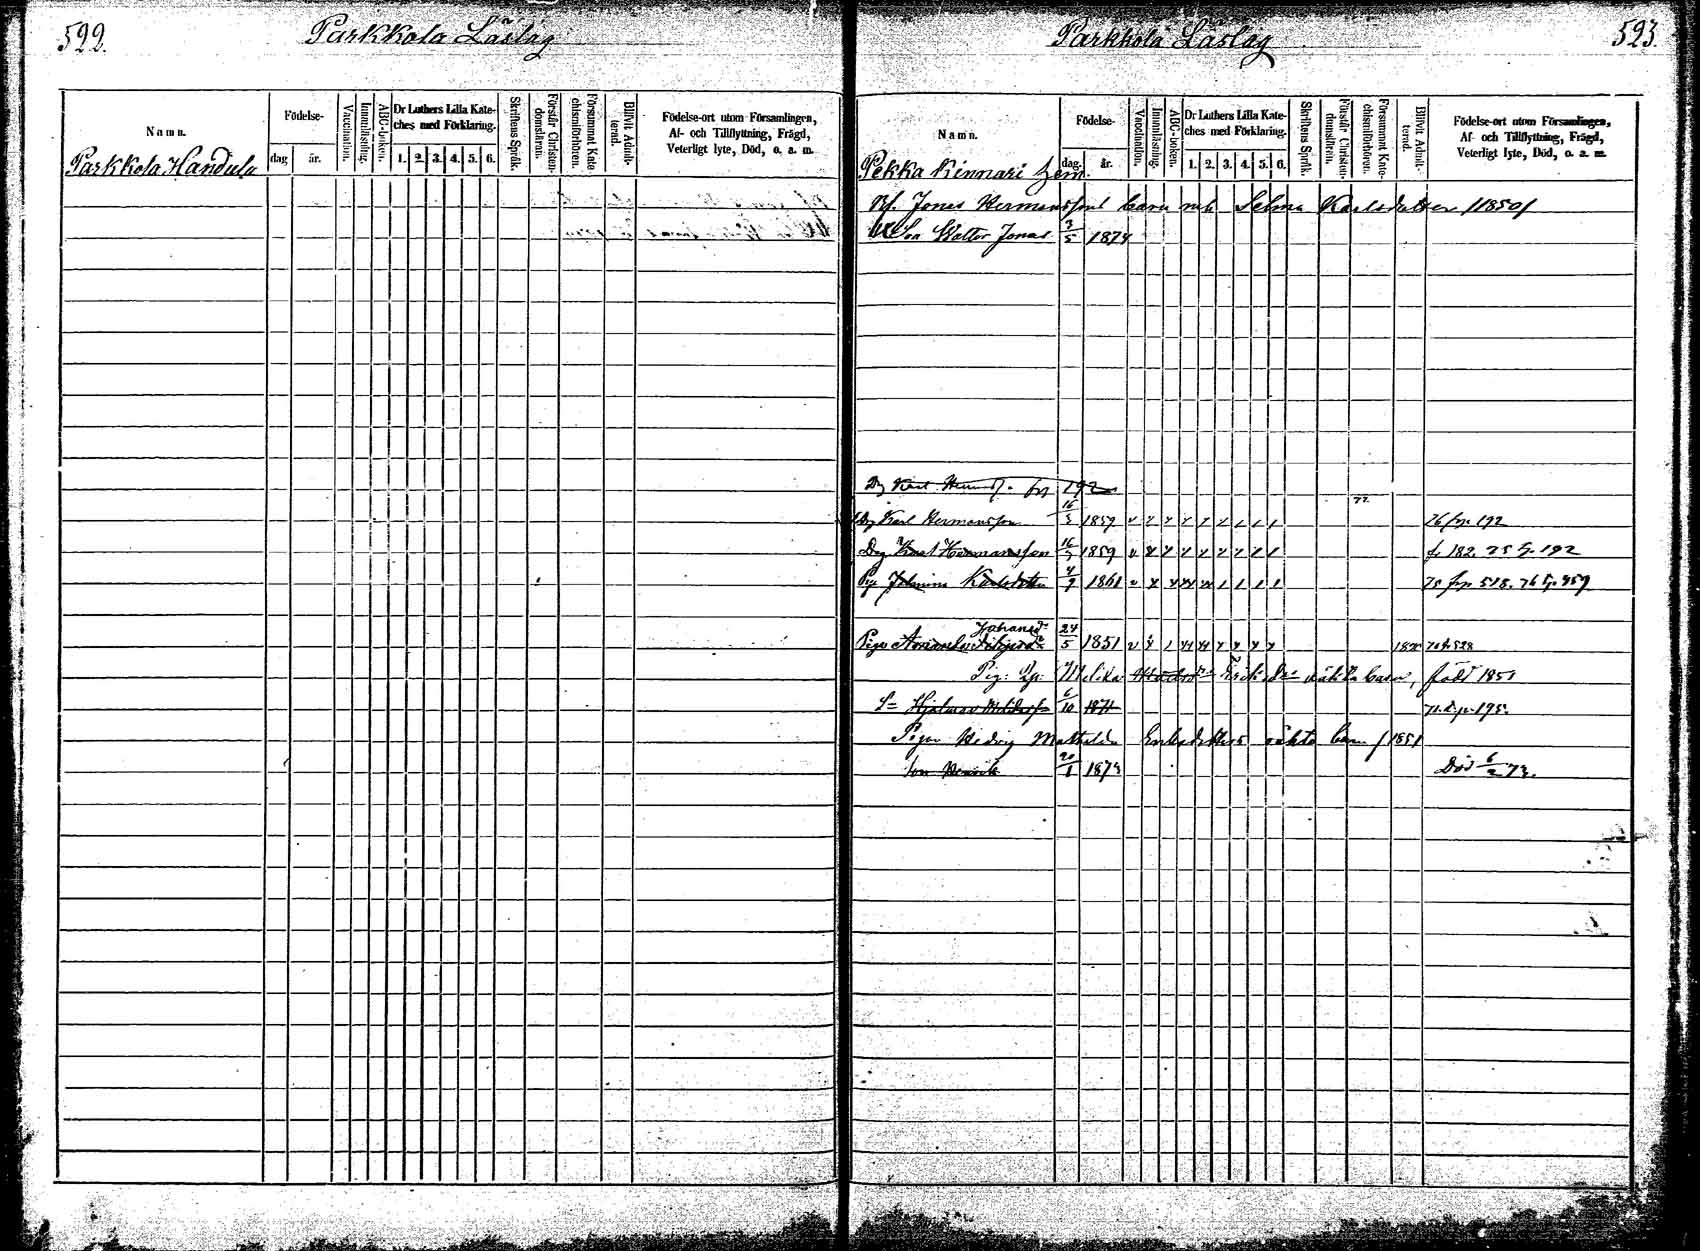 522.
Parkkola Läslag
Namn.
Födelse-
dag
år.
Vaccination.
Innanläsning.
ABC-boken.
Dr Luthers Lilla Kate-
ches med Förklaring.
1. 2. 3. 4. 5. 6.
Skriftens Språk.
Förstår Christen-
domsläran.
Försummat Kate-
chismiförhören.
Blifvit Admit-
terad.
Födelse-ort utom Församlingen,
Af- och Tillflyttning, Frägd,
Veterligt lyte, Död, o. a. m.
Parkkola Handula
Parkkola Läslag
523.
Namn.
Födelse-
dag.
år.
Vaccination.
Innanläsning.
ABC-boken.
Dr Luthers Lilla Kate-
ches med Förklaring.
1. 2. 3. 4. 5. 6.
Skriftens Språk.
Förstår Christen-
domsläran.
Försummat Kate-
chismiförhören.
Blifvit Admit-
terad.
Födelse-ort utom Församlingen,
Af- och Tillflyttning, Frägd,
Veterligt lyte, Död, o. a. m.
Pekka Kinnari hem.
Jonas Hermansson barn m h Selma Karlsdotter /1850/
Son Walter Jonas 3/5 1874
Drg Karl 192
Drg Karl Hermansson 16/3 1859 76 192
Drg Karl Hermansson 16/3 1859 fr 182. 75 192
Pig Karlsdotter 4/9 1861 75 518. 76 459
Johansd:r
Piga Amanda 24/5 1851 528
Pig: Erics d:r oäkta barn, född 1851
S= Hjalmar 6/10 1871 71. 195.
Pigan Hedvig Mathilda Eriksdotters oäkta barn f 1851
Son Henrik 20/1 1873 Död 6/2 73.